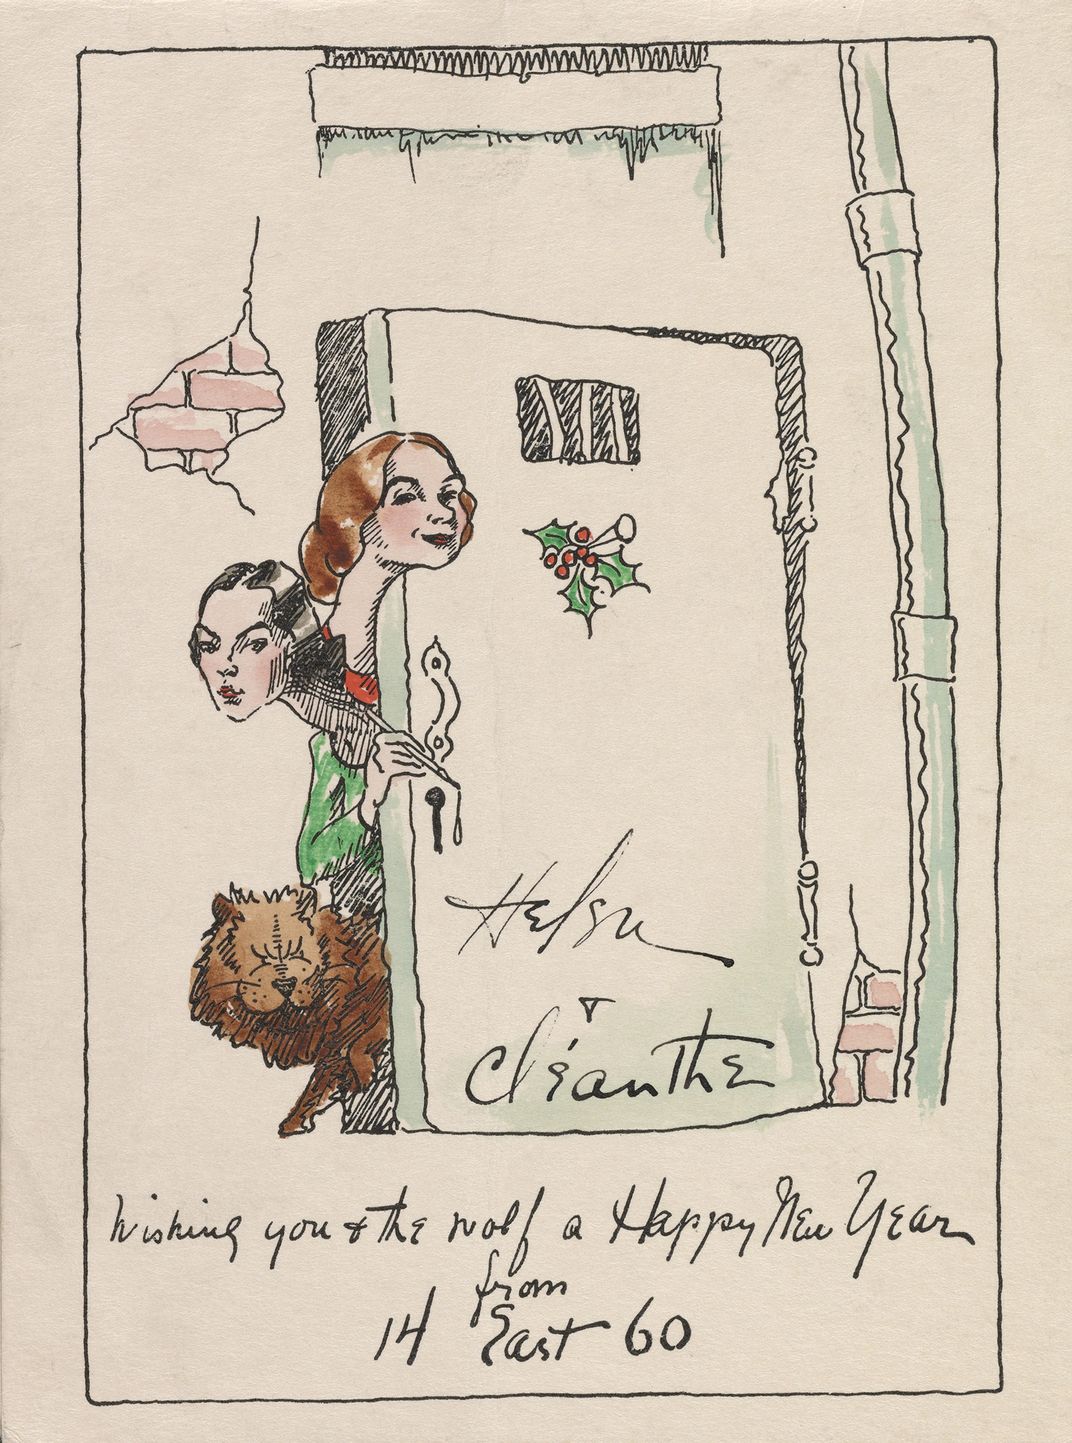 Helen
&
Cléanthe
Wishing you & the wolf a Happy New Year
from
14 East 60